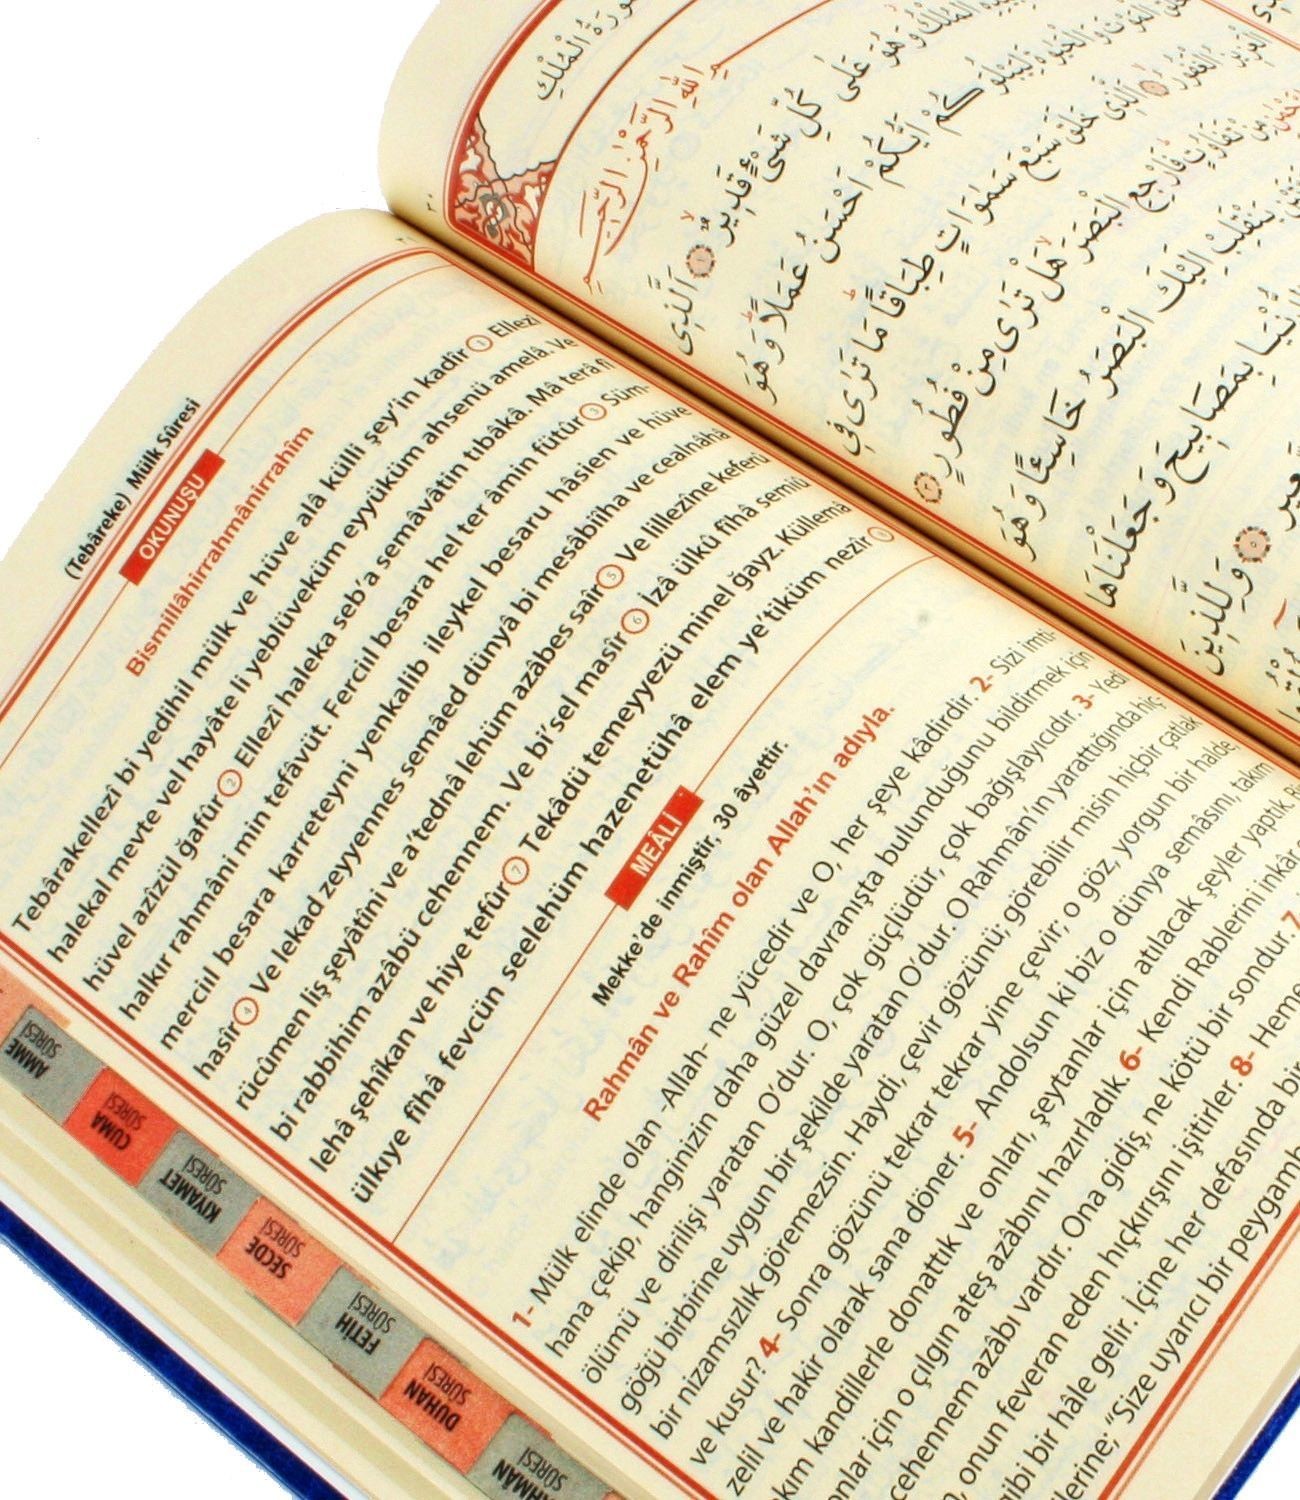 (Tebâreke) Mülk Sûresi
OKUNUŞU
Bismillâhirrahmânirrahîm
Tebârakellezî bi yedihil mülk ve hüve alâ külli şey’in kadîr 1 Ellezî
halekal mevte vel hayâte li yeblüveküm eyyüküm ahsenü amelâ. Ve
hüvel azîzül ğafûr 2 Ellezî haleka seb’a semâvâtin tıbâkâ. Mâ terâ fî
halkır rahmâni min tefâvüt. Ferciıl besara hel ter âmin fütûr 3 Süm-
merciıl besara karreteyni yenkalib ileykel besaru hâsien ve hüve
hasîr 4 Ve lekad zeyyennes semâed dünyâ bi mesâbîiha ve cealnâhâ
rücûmen liş şeyâtîni ve a’tednâ lehüm azâbes saîr 5 Ve lillezîne keferû
bi rabbihim azâbü cehennem. Ve bi’sel masîr 6 İzâ ülkû fîhâ semiû
lehâ şehîkan ve hiye tefûr 7 Tekâdü temeyyezü minel ğayz. Küllemâ
ülkıye fîhâ fevcün seelehüm hazenetühâ elem ye’tiküm nezîr 8
MEÂLİ
Mekke’de inmiştir, 30 âyettir.
Rahmân ve Rahîm olan Allah’ın adıyla.
1- Mülk elinde olan -Allah- ne yücedir ve O, her şeye kâdirdir. 2- Sizi imti-
hana çekip, hanginizin daha güzel davranışta bulunduğunu bildirmek için
ölümü ve dirilişi yaratan O’dur. O, çok güçlüdür, çok bağışlayıcıdır. 3- Yedi
göğü birbirine uygun bir şekilde yaratan O’dur. O Rahmân’ın yarattığında hiç-
bir nizamsızlık göremezsin. Haydi, çevir gözünü; görebilir misin hiçbir çatlak
ve kusur? 4- Sonra gözünü tekrar tekrar yine çevir; o göz, yorgun bir halde,
zelil ve hakir olarak sana döner. 5- Andolsun ki biz o dünya semâsını, takım
kım kandillerle donattık ve onları, şeytanlar için atılacak şeyler yaptık.
onlar için o çılgın ateş azabını hazırladık. 6- Kendi Rablerini inkâr
cehennem azâbı vardır. Ona gidiş, ne kötü bir sondur. 7
onun feveran eden hıçkırışını işitirler. 8- Heme
gibi bir hâle gelir. İçine her defasında bir
lerine; “Size uyarıcı bir peygamb
AMME SÛRESİ
CUMA SÛRESİ
KIYAMET SÛRESİ
SECDE SÛRESİ
FETİH SÛRESİ
DUHAN SÛRESİ
HMÂN SÛRESİ
سُورَةُ الْمُلْكِ
اللّٰهِ الرَّحْمٰنِ الرَّحِيمِ
الْمُلْكُ وَهُوَ عَلٰى كُلِّ شَيْءٍ قَدِيرٌ ١ اَلَّذِي
الْمَوْتَ وَالْحَيٰوةَ لِيَبْلُوَكُمْ اَيُّكُمْ اَحْسَنُ عَمَلًا وَهُوَ
الْعَزِيزُ الْغَفُورُ ٢ اَلَّذِي خَلَقَ سَبْعَ سَمٰوَاتٍ طِبَاقًا مَا تَرٰى فِي
مِنْ تَفَاوُتٍ فَارْجِعِ الْبَصَرَ هَلْ تَرٰى مِنْ فُطُورٍ ٣
يَنْقَلِبْ اِلَيْكَ الْبَصَرُ خَاسِئًا وَهُوَ
الدُّنْيَا بِمَصَابِيحَ وَجَعَلْنَاهَا
٥ وَلِلَّذِينَ